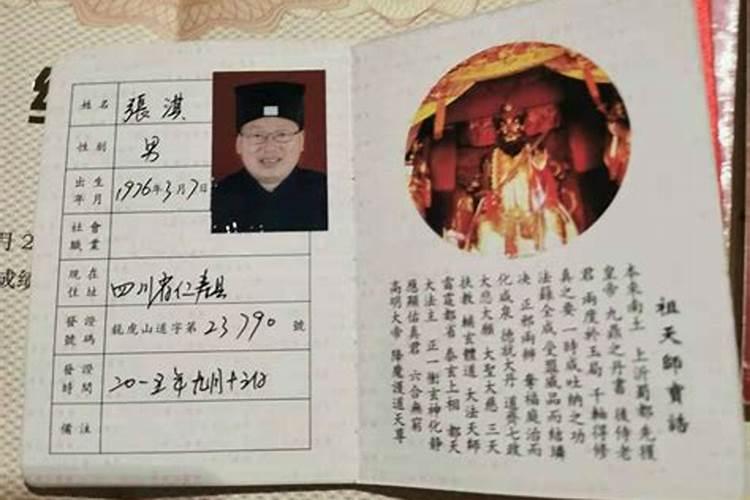 姓名 張淇
性别 男
出生年月 1976年3月7日
社會職業
現在住址 四川省仁寿县
發證號碼 龍虎山道字第23790號
發證時間 二〇一五年九月十二日
備注
祖天師寶誥
本來南土 上沂蜀都 先獲
皇帝 九鼎之丹書 後侍老
君 兩度於玉局 千軸得修
真之要 一時成吐納之功
法籙全成 受盟威品而結璘
决 正邪兩辦 奪福庭治而
化咸泉 德就大丹 道齊七政
大悲大願 大聖大慈 三天
扶教 輔玄體道 大法天師
雷霆都省 泰玄上相 都天
大法主 正一冲玄神化静
應顯佑真君 六合無窮
高明大帝 降魔護道天尊